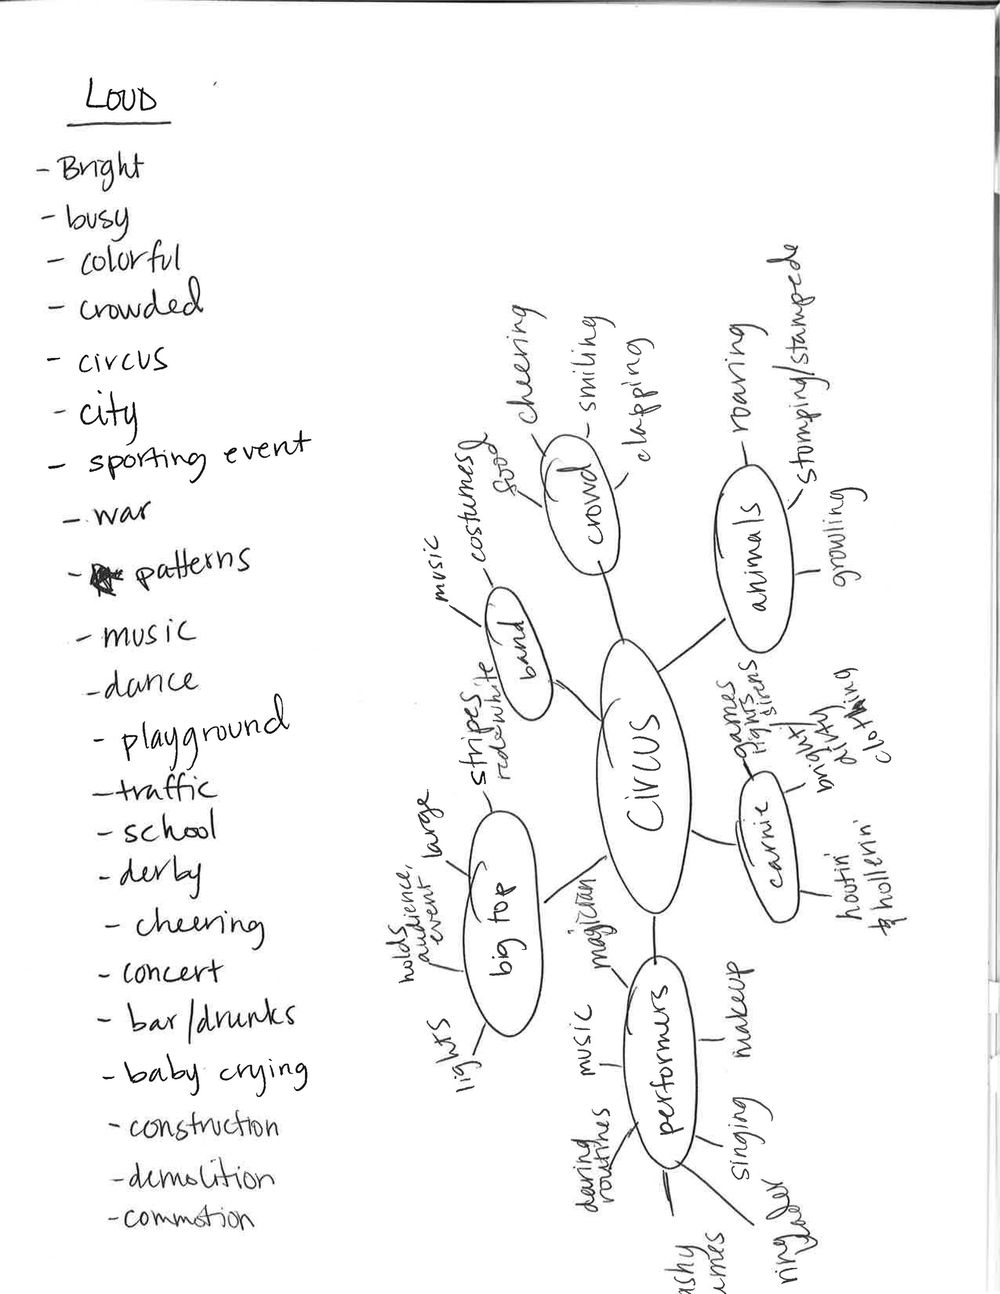 LOUD
- Bright
- busy
- colorful
- crowded
- circus
- city
- sporting event
- war
- patterns
- music
- dance
- playground
- traffic
- school
- derby
- cheering
- concert
- bar/drunks
- baby crying
- construction
- demolition
- commotion
circus
crowd
food
cheering
smiling
clapping
animals
roaring
stomping/stampede
growling
band
music
costumes
big top
stripes
red & white
large
holds
audience,
event
lights
carnie
games
lights
sirens
bright
dirty
clothing
hootin'
& hollerin'
performers
magician
music
daring
routines
makeup
singing
ring
leader
ashy
umes